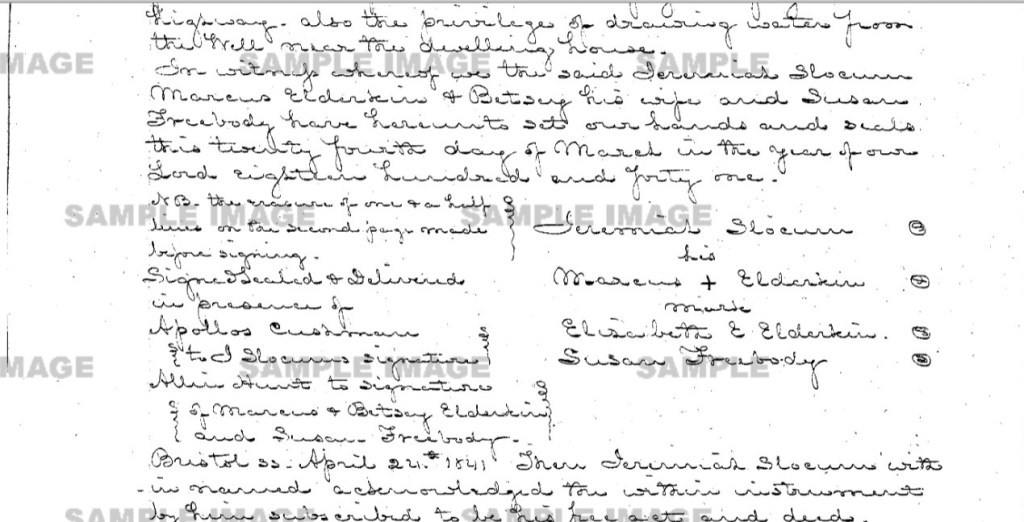 highway. also the privilege of drawing water from
the Well near the dwelling house.
In witness whereof we the said Jeremiah Slocum
Marcus Elderkin & Betsey his wife and Susan
Freebody have hereunto set our hands and seals
this twenty fourth day of March in the year of our
Lord eighteen hundred and forty one.
NB. the erasure of one & a half
lines on the second page made
before signing.
Jeremiah Slocum
his
Signed Sealed & Delivered
Marcus + Elderkin
in presence of
mark
Apollos Cushman
Elisabeth E Elderkin.
to J Slocums signature
Susan Freebody
Allin Hunt to signature
of Marcus & Betsey Elderkin
and Susan Freebody.
Bristol ss. April 24th 1841 Then Jeremiah Slocum with
in named acknowledged the within instrument
by him subscribed to be his free act and deed.
SAMPLE IMAGE